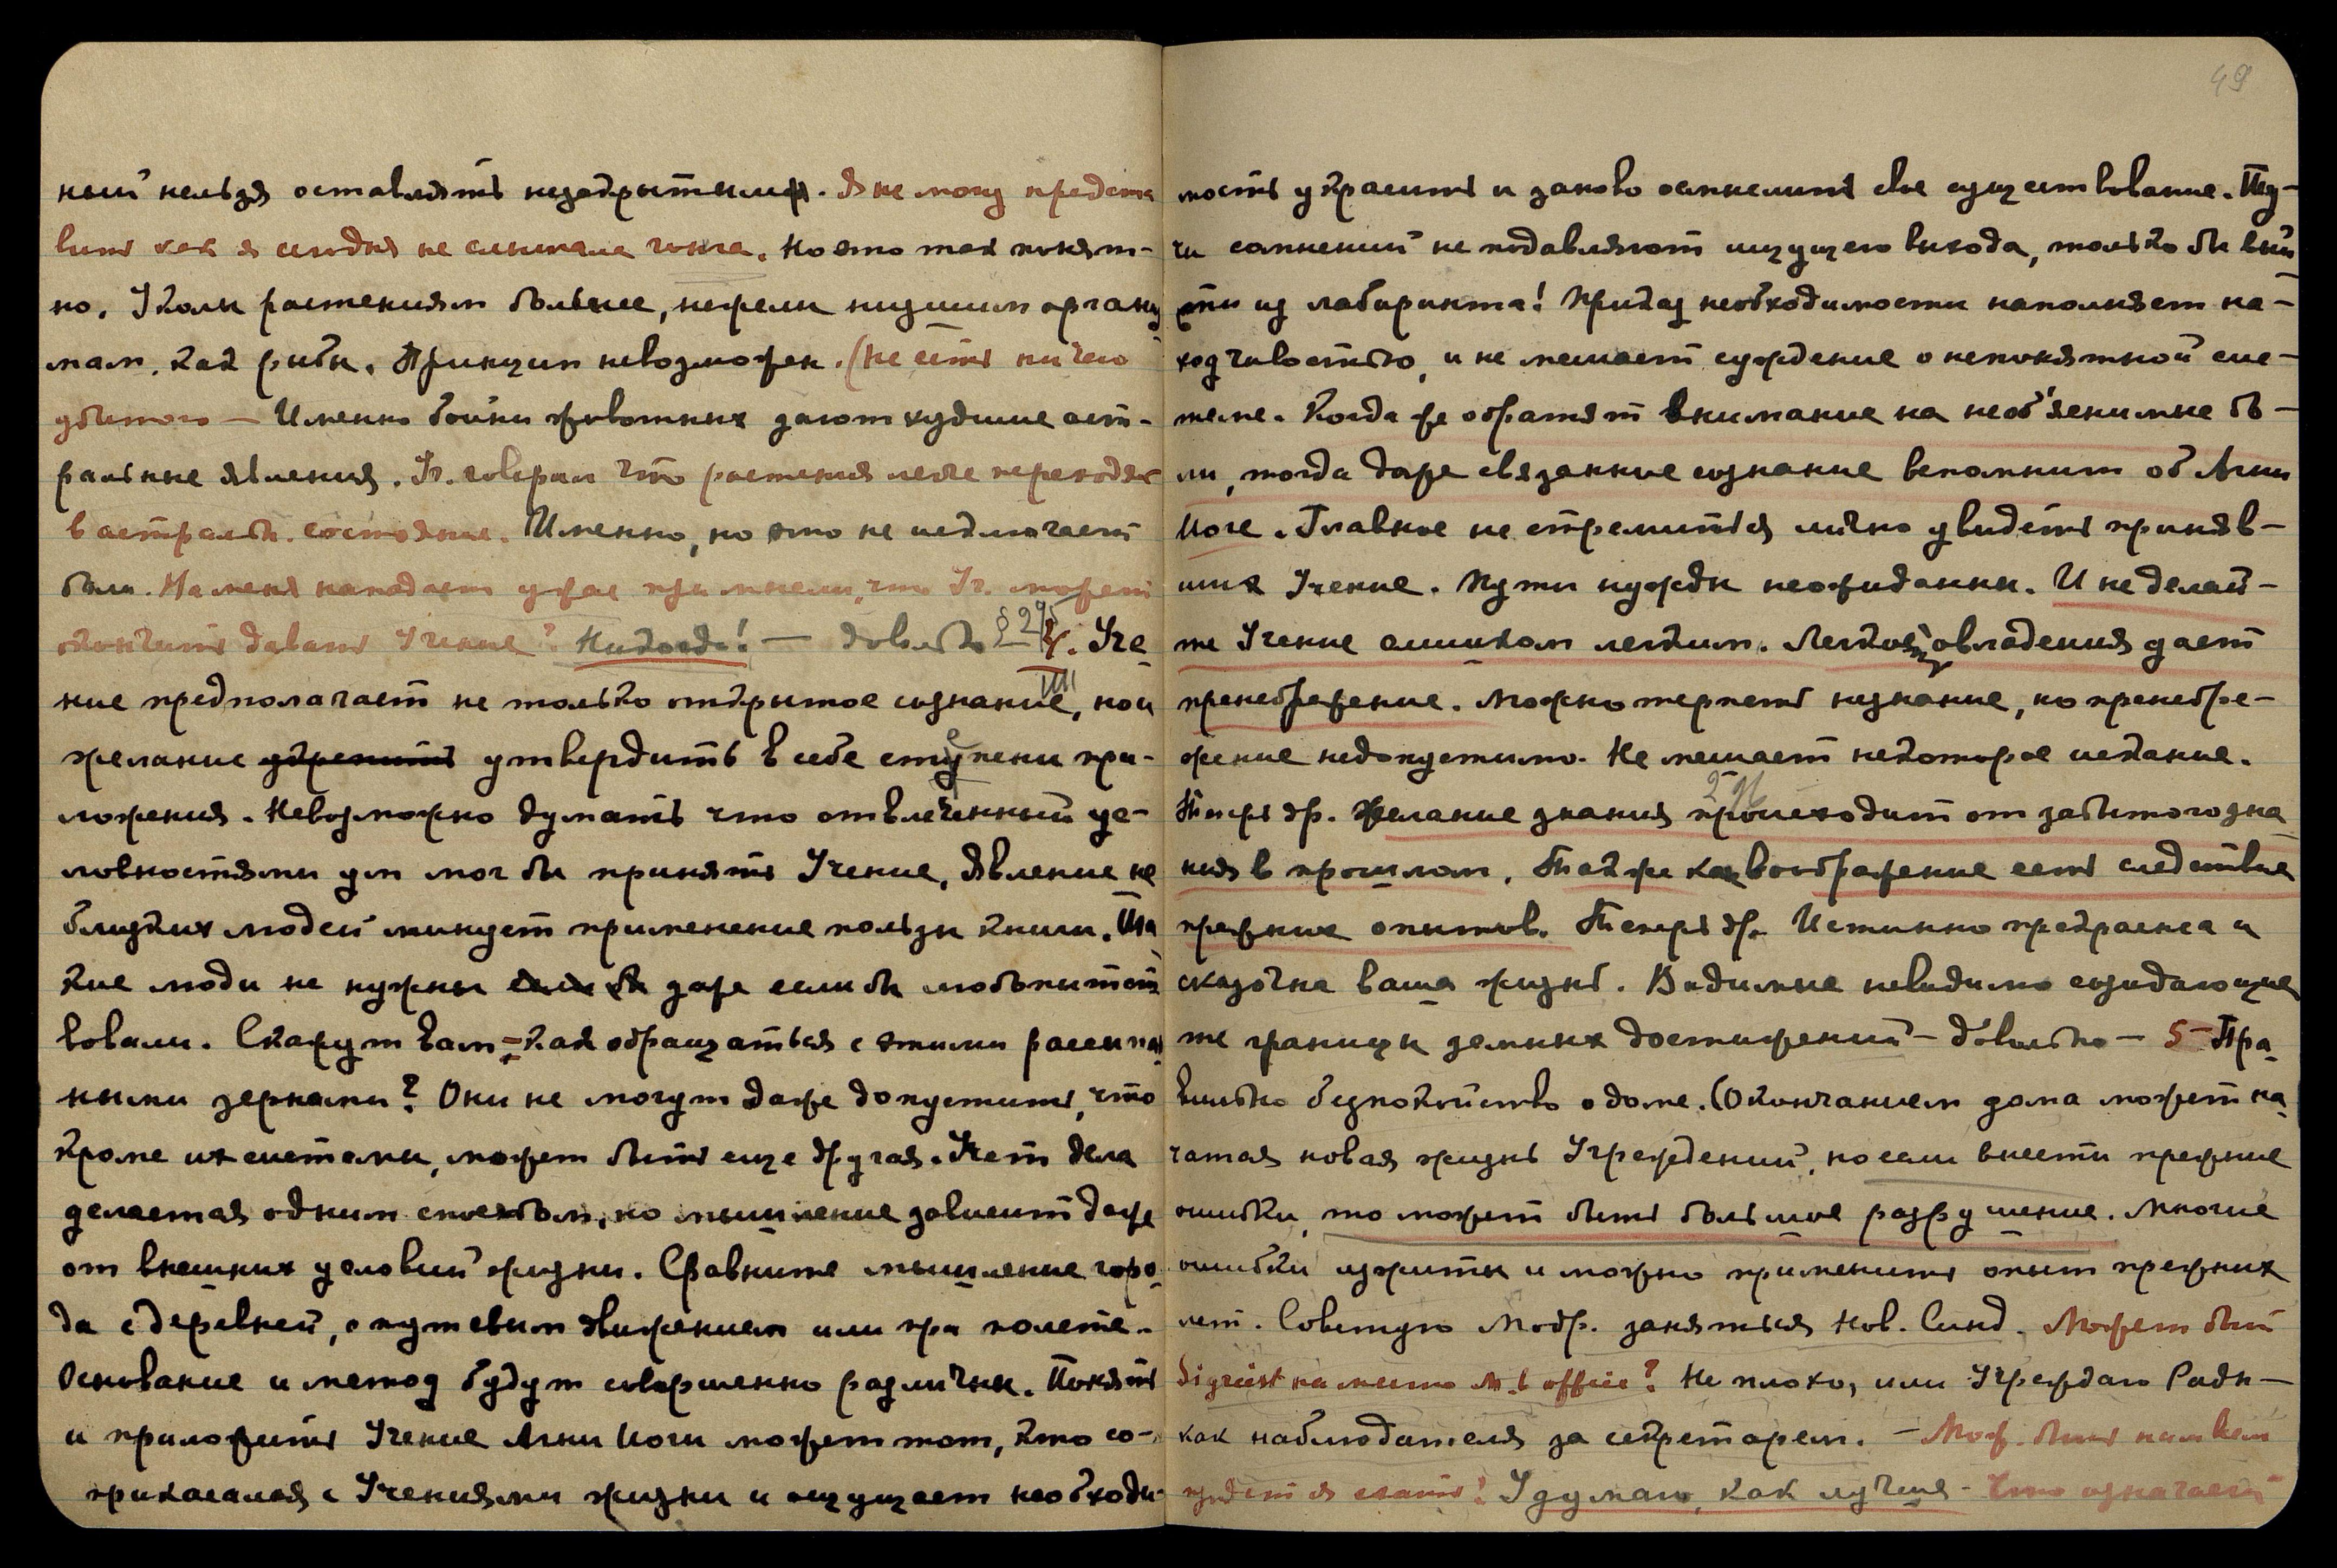 ный нельзя оставлять незакрытым. Я не могу предста
вить как я сегодня не слышала гонга. Но это так понят-
но. Уколы растениям больнее, нежели низшим организ
мам, как рыбы. Принцип невозможен. (Не есть ничего
убитого — Именно бойни животных дают худшие аст-
ральные явления. Уч. говорил что растения легче переходят
в астральн. состояние. Именно, но это не исключает
боли. На меня нападает ужас при мысли, что Уч. может
окончить давать Учение? Никогда! — довольно § 295 4. Уче
III
ние предполагает не только открытое сознание, но и
желание укрепить утвердить в себе ступени при-
ложения. Невозможно думать что отвлеченный ус-
ловностями ум мог бы принять Учение. Явление не
близких людей минует применение пользы книги. Та
кие люди не нужны если бы даже если бы любопытст
вовали. Скажут вам = как обращаться с этими рассыпан
ными зернами? Они не могут даже допустить, что
кроме их системы, может быть еще другая. Учет дела
делается одним способом, но мышление зависит даже
от внешних условий жизни. Сравните мышление горо
да с деревней, с путевым движением или при полете.
Основание и метод будут совершенно различны. Понять
и приложить Учение Агни Йоги может тот, кто со-
прикасался с Учениями жизни и ощущает необходи-
49
мость украсить и заново осмыслить свое существование. Ту-
чи сомнений не подавляют ищущего выхода, только бы вый
ти из лабиринта! Приказ необходимости наполняет на-
ходчивостью, и не мешает суждение о непонятной сис-
теме. Когда же обратят внимание на необ'яснимые бо-
ли, тогда даже связанные сознание вспомнит об Агни
Йоге. Главное не стремиться лично увидеть приняв-
ших Учение. Пути нужды неожиданны. И не делай-
те Учение слишком легким. Легкость овладения дает
пренебрежение. Можно терпеть незнание, но пренебре-
жение недопустимо. Не мешает некоторое искание.
296
Теперь др. Желание знания происходит от забытого зна
ния в прошлом. Также как воображение есть следствие
прежних опытов. Теперь др. Истинно прекрасна и
сказочна ваша жизнь. Видимые невидимо созидающие
те границы земных достижений — довольно — 5 — Пра
вильно безпокойство о доме. (Окончанием дома может на
чатая новая жизнь Учреждений, но если внести прежние
ошибки, то может быть большое разрушение. Многие
ошибки изжиты и можно применить опыт прежних
лет. Советую Модр. заняться Нов. Синд. Может быть
Sigrist на место М. в office? Не плохо, или Учреждаю Радн —
как наблюдателя за секретарем. — Мож. быть нам всем
придется ехать? Удумаю, как лучше — Что означает